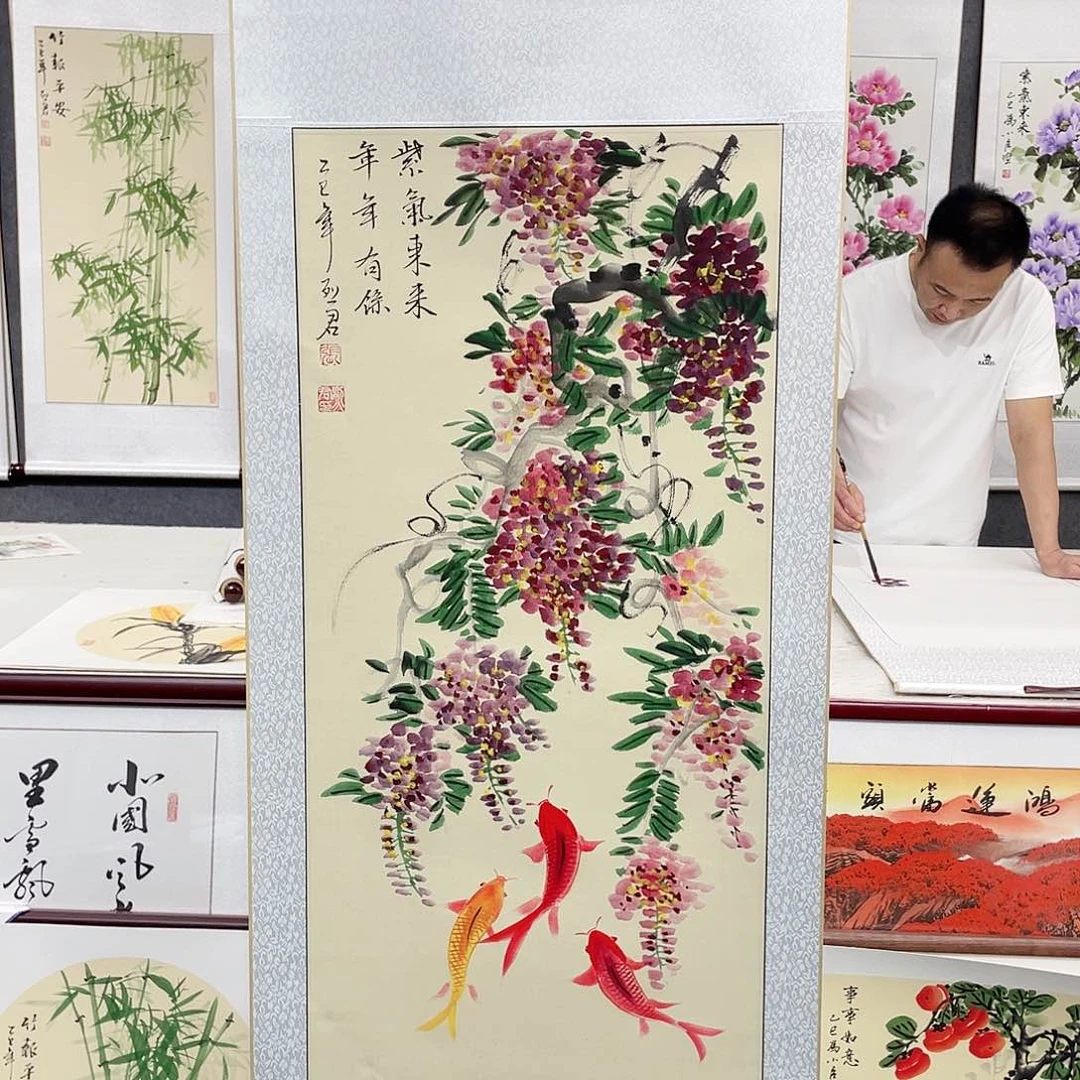 竹報平安
乙巳年 烈君
紫氣東来
年年有餘
乙巳年 烈君
紫氣東来
乙巳
北國風
里雪飄
鴻運當頭
竹報平
乙巳年
事事如意
乙巳